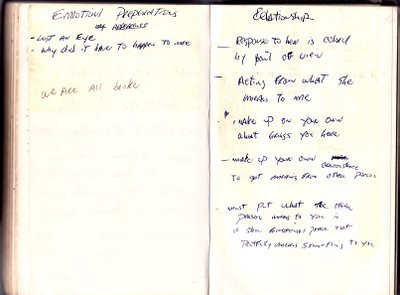 Emotional Preparations
my Apparence
- Lost An Eye
- Why did it have to happen to me
We Are All broke
Relationship
- Response to her is colored
by point of view
- Acting from what she
means to me
- make up on your own
what brings you here
- make up your own circumstance
to get meaning from other person
- must put what the other
person means to you in
a
that
means something to you